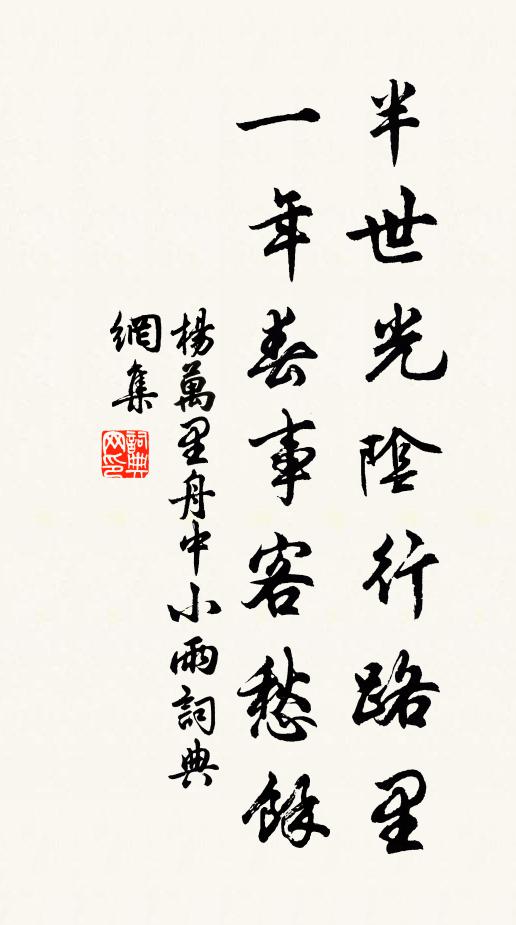 半世光陰行路里
一年春事客愁餘
楊萬里舟中小雨詞典
網集
詞典
网印